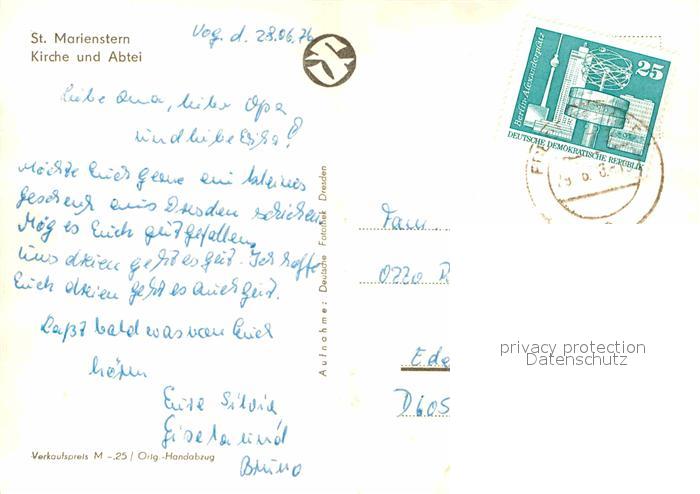 St. Marienstern
Kirche und Abtei
Vog. d. 28.06.76
Liebe Oma, lieber Opa
und liebe
Möchte Euch gerne ein kleines
geschenk aus Dresden schicken.
Mög es Euch gut gefallen,
Uns dreien geht es gut. Ich hoffe
Euch dreien geht es auch gut.
Laßt bald was von Euch
hören
Eure Silvia
Gisela und
Bruno
Verkaufspreis M -.25 / Orig.-Handabzug
Aufnahme: Deutsche Fotothek Dresden
Berlin-Alexanderplatz
25
DEUTSCHE DEMOKRATISCHE REPUBLIK
Fam.
Ede
D605
privacy protection
Datenschutz